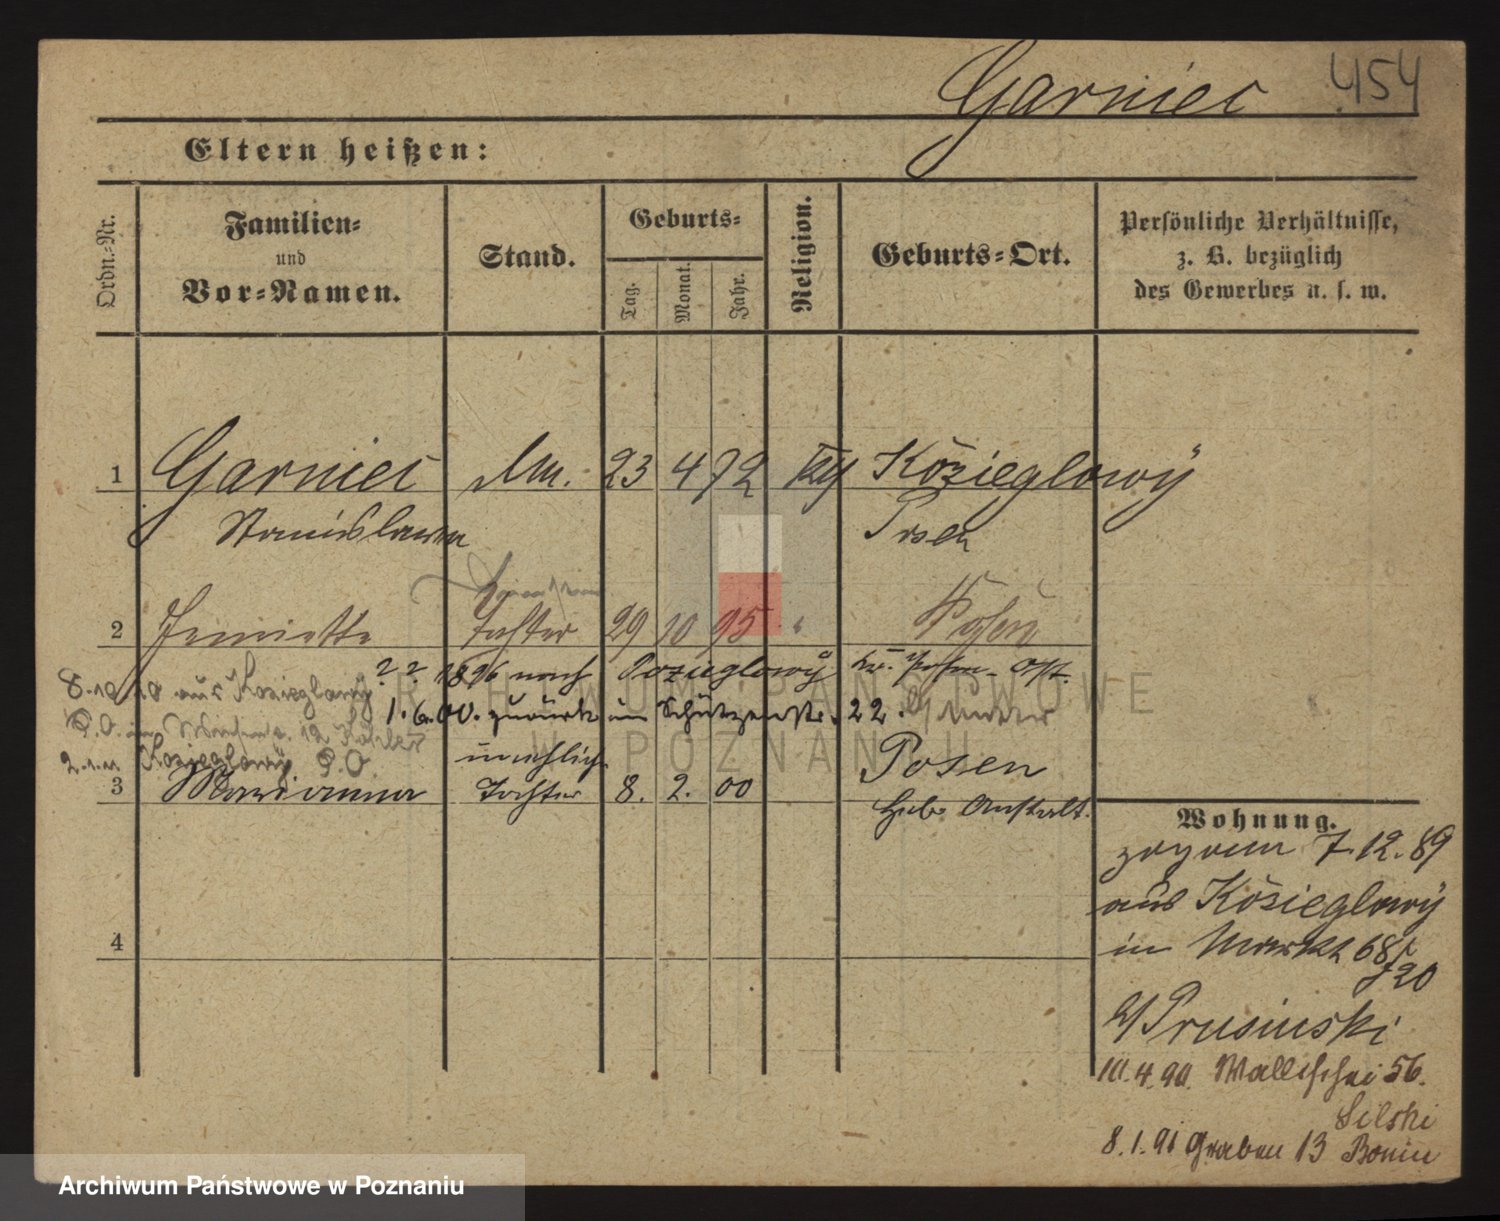 Garniec 454
Eltern heißen:
Ordn.-Nr.
Familien-
und
Vor-Namen.
Stand.
Geburts-
Tag.
Monat.
Jahr.
Religion.
Geburts-Ort.
Persönliche Verhältnisse,
z. B. bezüglich
des Gewerbes u. s. w.
1 Garniec 23 4 72 Kozieglowÿ
Stanislawa Posen
2 Henriette Tochter 29 10 95 " Posen
8.10.10 aus Kozieglowÿ
1896 nach Kozieglowÿ Kr. Posen-Ost.
1.6.00. zurück in Schützenstr. 22.
P.O.
2.1.11 Kozieglowÿ P.O.
unehlich. Posen
3 Marianna Tochter 8. 2. 00
Heb. Anstalt.
4
Wohnung.
zogem 7.12.89
aus Kozieglowÿ
in Markt 68/
b/Prusinski
10.4.90. Wallischei 56.
Silski
8.1.91 Graben 13 Bonin
ARCHIWUM PAŃSTWOWE
W POZNANIU
Archiwum Państwowe w Poznaniu